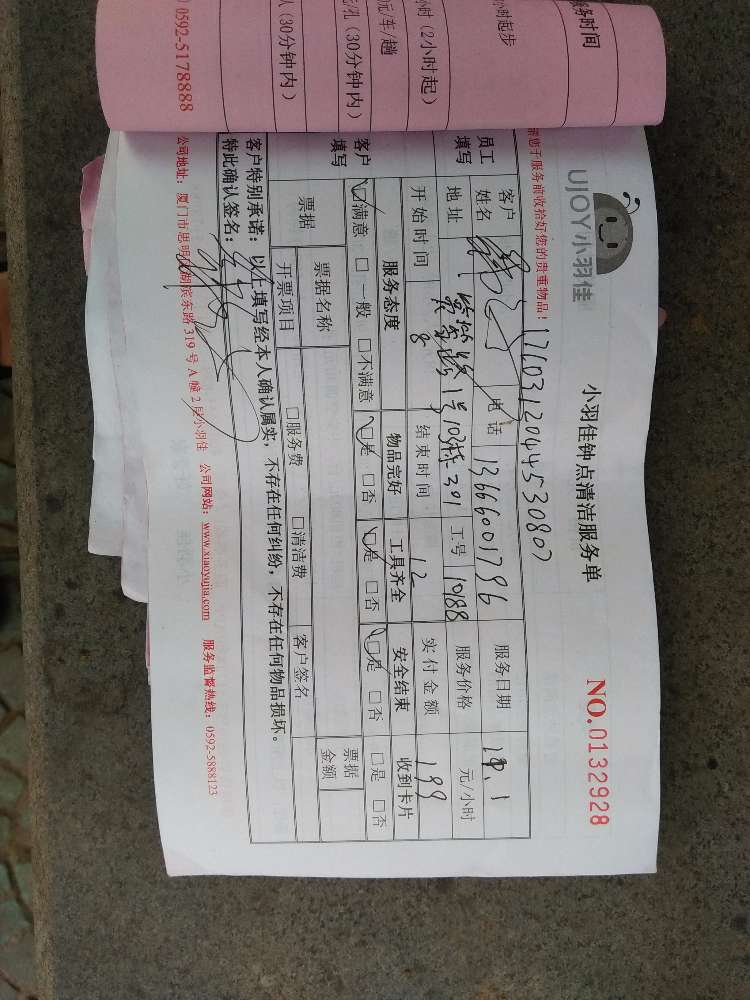 服务时间
小时起步
小时（2小时起）
元/车/趟
元/孔（30分钟内）
人（30分钟内）
0592-5178888
UJOY小羽佳
小羽佳钟点清洁服务单
NO.0132928
您于服务前收拾好您的贵重物品！
17603120445530807
员工填写
客户姓名
电话 13666001796
服务日期 1.1
地址 号10梯301
工号 10188
服务价格 元/小时
开始时间 8
结束时间 12
实付金额 199
客户填写
服务态度 物品完好 工具齐全 安全结束 收到卡片
□满意 □一般 □不满意 □是 □否 □是 □否 □是 □否 □是 □否
票据
票据名称
票据金额
开票项目 □服务费 □清洁费 客户签名
客户特别承诺：以上填写经本人确认属实，不存在任何纠纷，不存在任何物品损坏。
特此确认签名：
公司地址：厦门市思明区湖滨东路319号A幢2层小羽佳 公司网站：www.xiaoyujia.com 服务监督热线：0592-5888123